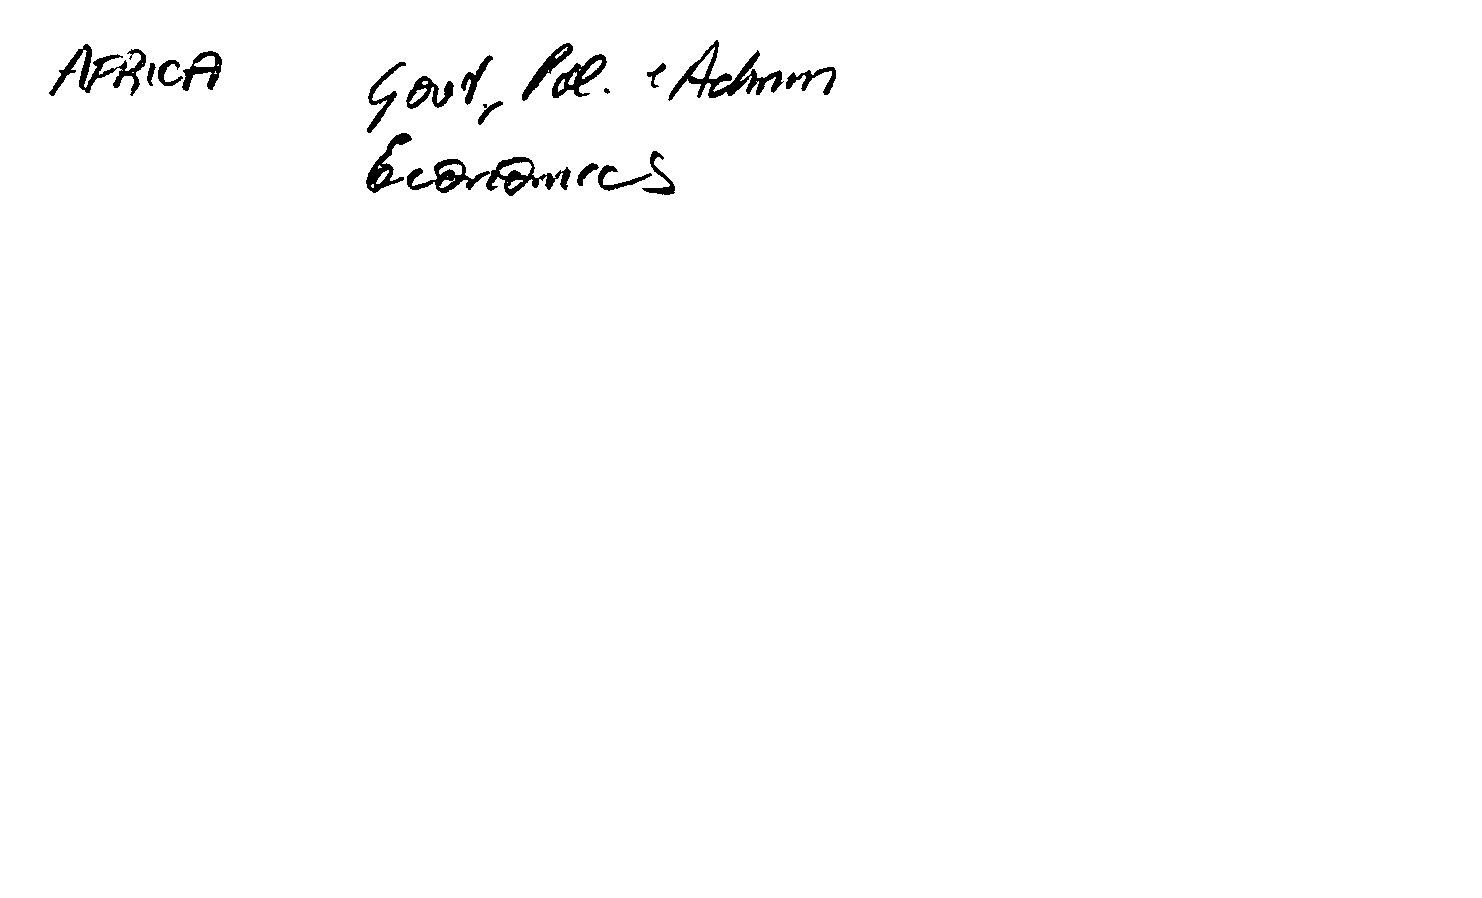 AFRICA Govt, Pol. & Admin
Economics